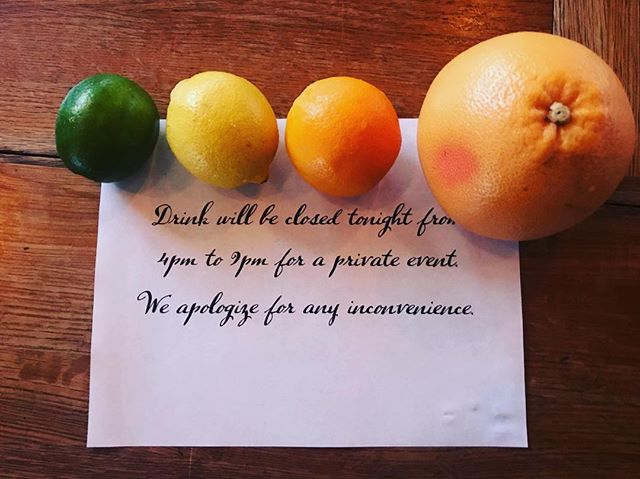 Drink will be closed tonight from
4pm to 9pm for a private event.
We apologize for any inconvenience.